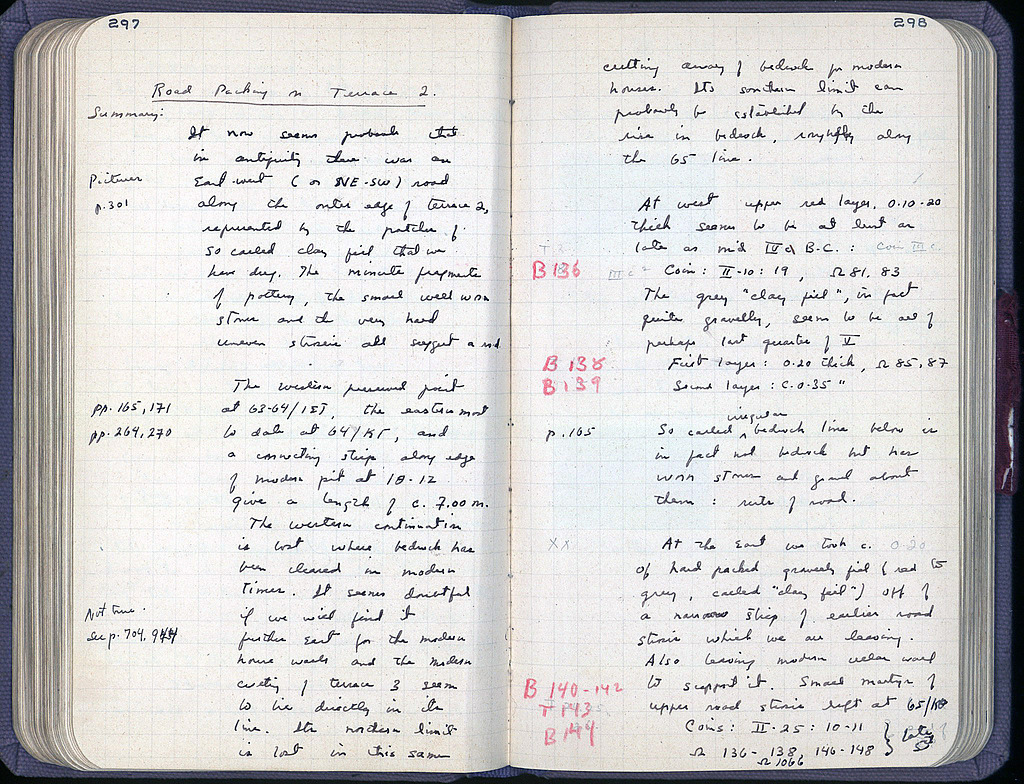 297
Road Packing on Terrace 2.
Summary:
It now seems probable that
in antiquity there was an
Pictures East-west (or NE-SW) road
p.301 along the outer edge of terrace 2,
represented by the patches of
so called clay fill that we
have dug. The minute fragments
of pottery, the small well worn
stones and the very hard
uneven strosis all suggest a road.
The western preserved point
pp. 165, 171 at 63-64/ , the eastern most
pp. 264, 270 to date at 64/ , and
a connecting strip along edge
of modern pit at 10-12
give a length of c. 7.00 m.
The western continuation
is lost where bedrock has
been cleared in modern
times. It seems doubtful
Not true. if we will find it
See p. 704, further East for the modern
house walls and the modern
cutting of terrace 3 seem
to lie directly in its
line. Its northern limit
is lost in this same
298
cutting away of bedrock for modern
houses. Its southern limit can
probably be established by the
rise in bedrock, roughly along
the 65 line.
At west upper red layer, 0.10-20
thick seems to be at least as
late as mid IV c B.C.: Coin III c.
B 136 III c Coin: II-10: 19, Ω 81, 83
The grey "clay fill", in fact
quite gravelly, seems to be all of
perhaps last quarter of V
B 138 First layer: 0.20 thick, Ω 85, 87
B 139 Second layer: c. 0.35 "
irregular
p. 165 So called bedrock line below is
in fact not bedrock but has
worn stones and gravel about
them: ruts of road.
XX At the East we took c. 0.20
of hard packed gravelly fill (red to
grey, called "clay fill") off of
a narrow strip of earlier road
strosis which we are leaving.
Also leaving modern wall
B 140-142 to support it. Small martyr of
T 143 upper road strosis left at 65/
B 144 Coins: II-25: 10-11 } late
Ω 136-138, 146-148
Ω 1066